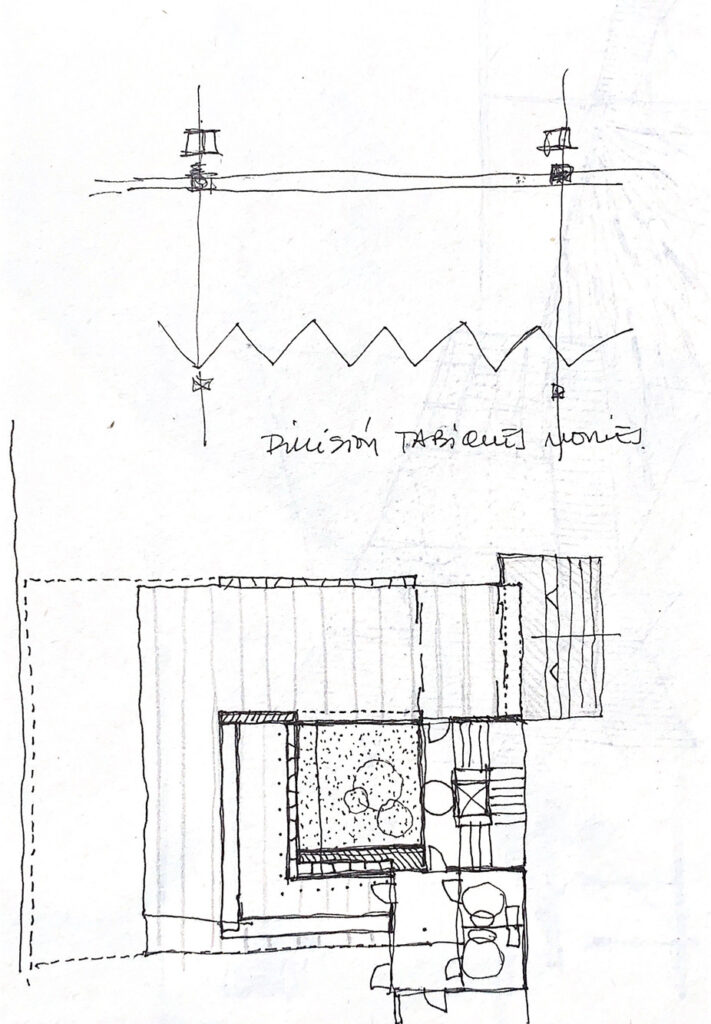 DIVISIÓN TABIQUES MOVILES.